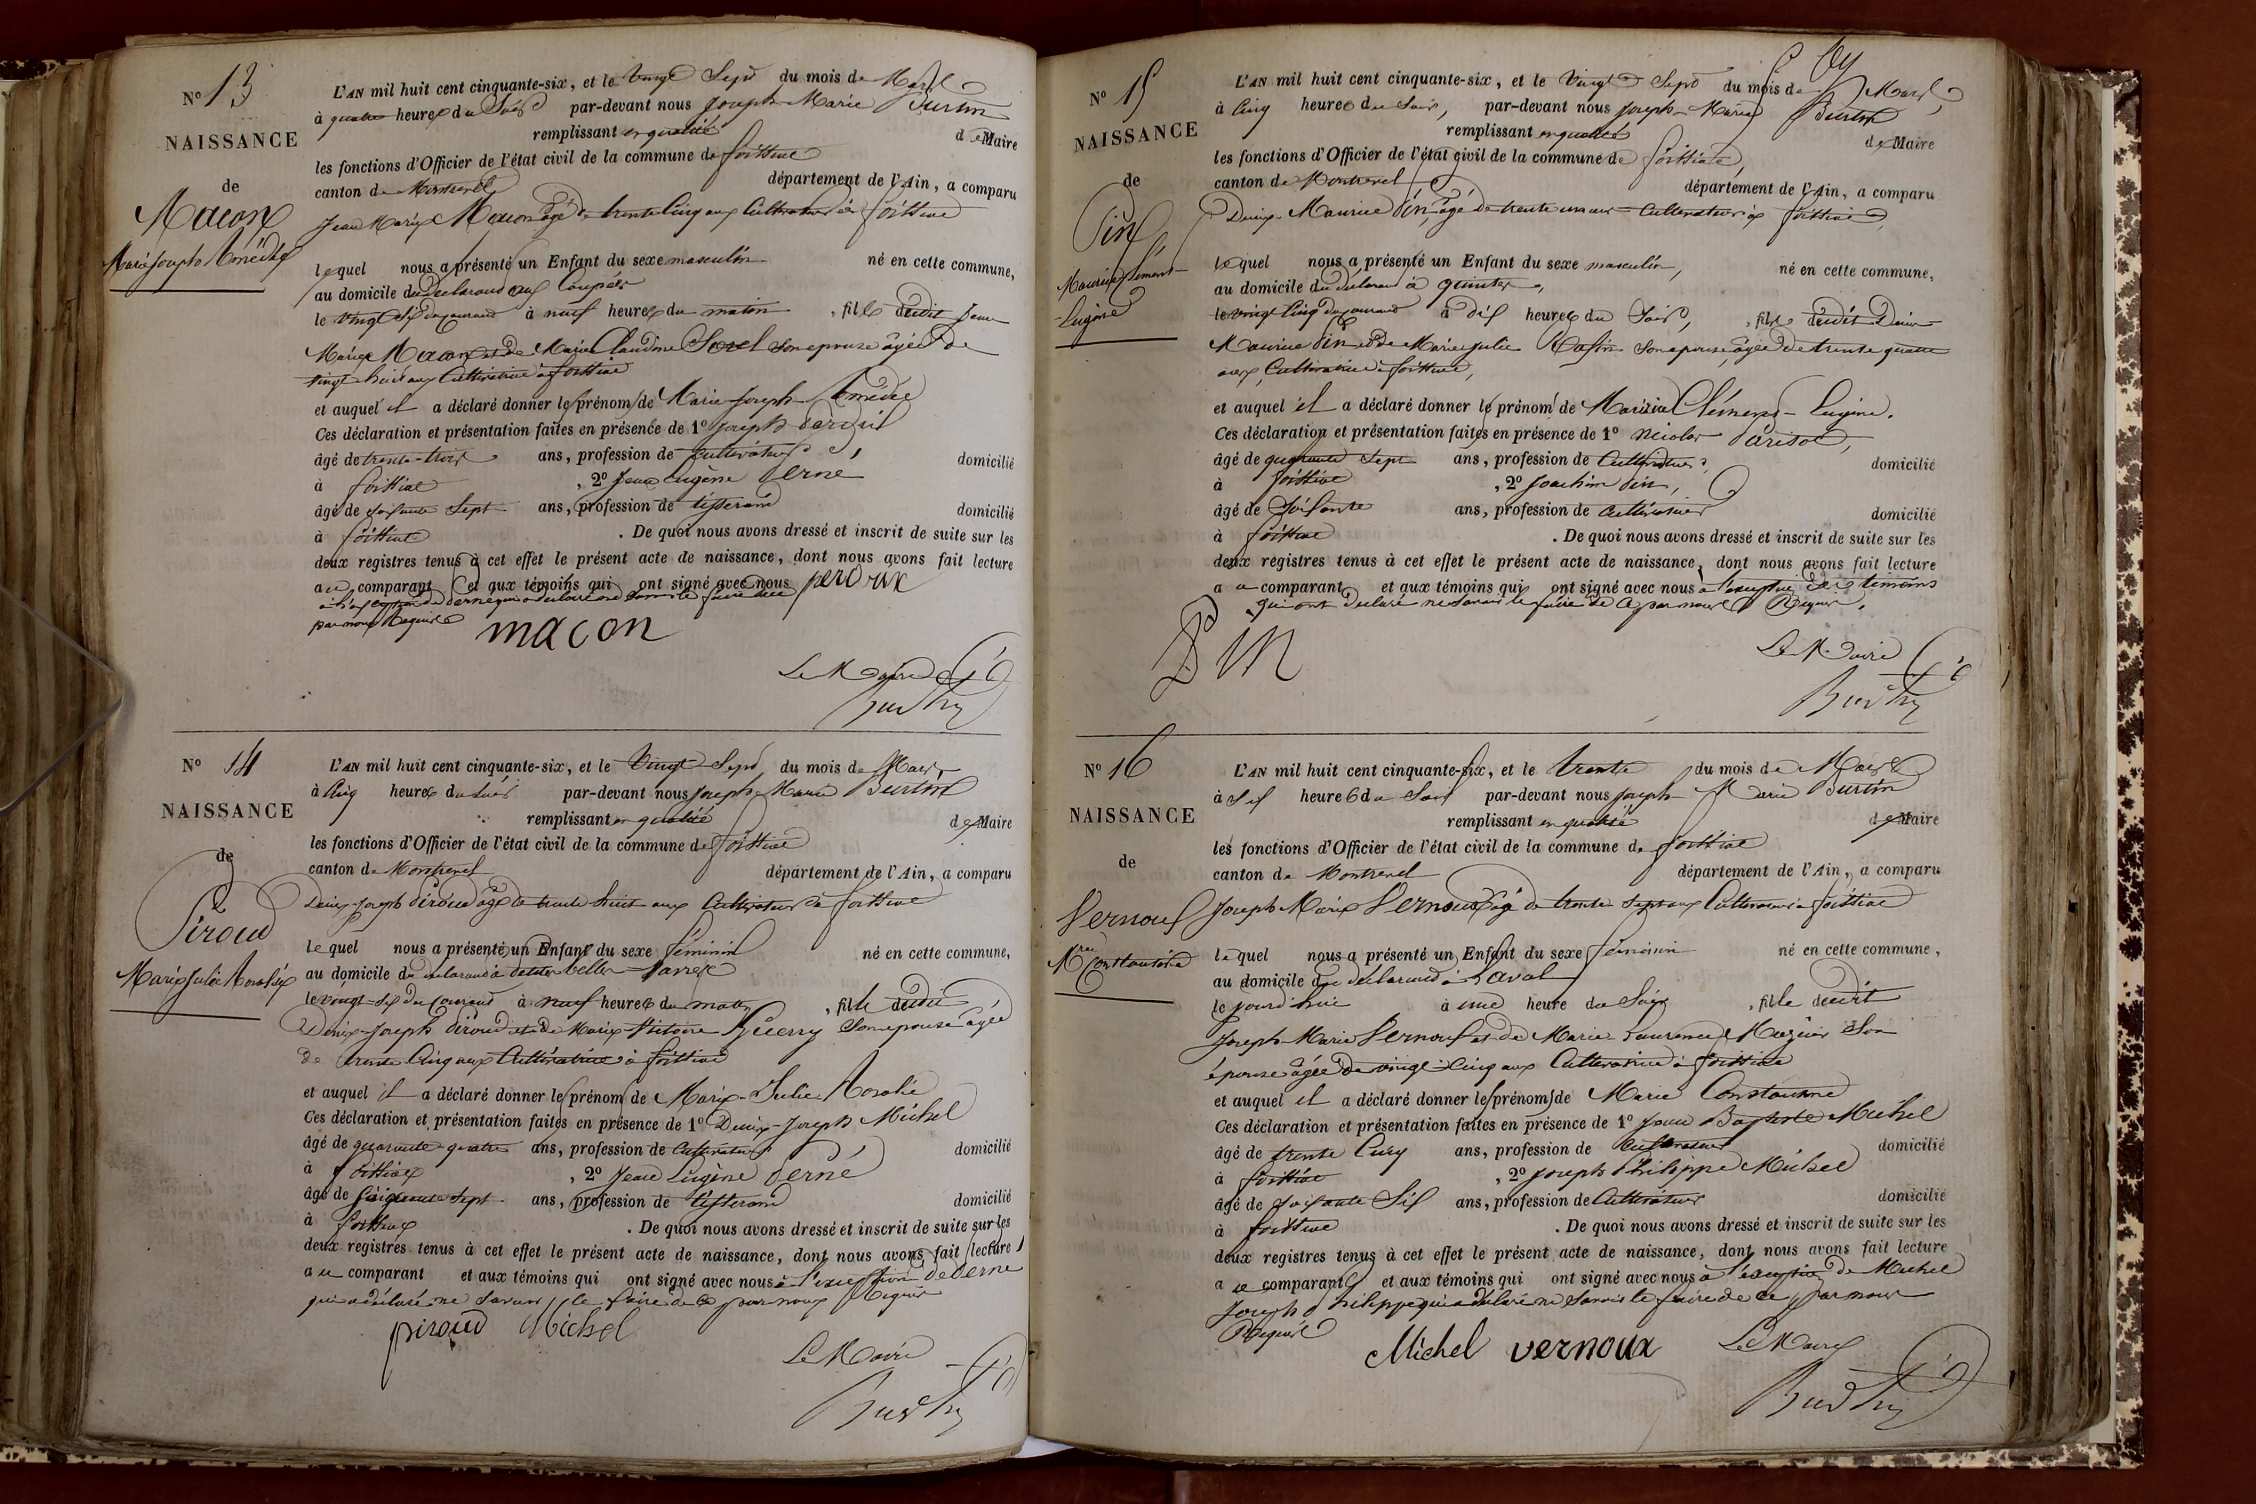 N° 13
NAISSANCE
de
Macon
Marie Joseph Amédée
L'AN mil huit cent cinquante-six, et le vingt Sept du mois de Mars
à quatre heures du Soir par-devant nous Joseph Marie Burtin
remplissant en qualité de Maire
les fonctions d'Officier de l'état civil de la commune de foissiat
canton de Montrevel département de l'Ain, a comparu
Jean Marie Macon âgé de trente Cinq ans Cultivateur à foissiat
lequel nous a présenté un Enfant du sexe masculin né en cette commune,
au domicile du déclarant aux
le vingt six du courant à neuf heures du matin, fils dudit Jean
Marie Macon et de Marie Claudine Sorel Son épouse âgée de
vingt huit ans Cultivatrice à foissiat
et auquel il a déclaré donner les prénoms de Marie Joseph Amédée
Ces déclaration et présentation faites en présence de 1° Joseph
âgé de trente-trois ans, profession de Cultivateur domicilié
à foissiat, 2° Jean Eugène Derne
âgé de Sept ans, profession de tisserand domicilié
à foissiat. De quoi nous avons dressé et inscrit de suite sur les
deux registres tenus à cet effet le présent acte de naissance, dont nous avons fait lecture
au comparant et aux témoins qui ont signé avec nous
à l'exception de Derne qui a déclaré ne savoir le faire de ce
par nous Requis
macon
Le Maire
Burtin
N° 14
NAISSANCE
de
Piroud
Marie Julie Rosalie
L'AN mil huit cent cinquante-six, et le Vingt Sept du mois de Mars
à Cinq heures du Soir par-devant nous Joseph Marie Burtin
remplissant en qualité de Maire
les fonctions d'Officier de l'état civil de la commune de foissiat
canton de Montrevel département de l'Ain, a comparu
Denis-Joseph Piroud âgé de trente huit ans Cultivateur à foissiat
lequel nous a présenté un Enfant du sexe féminin né en cette commune,
au domicile du déclarant à
le vingt-six du courant à neuf heures du matin, fille dudit
Denis-Joseph Piroud et de Marie Guerry Son épouse âgée
de trente Cinq ans Cultivatrice à foissiat
et auquel il a déclaré donner les prénoms de Marie-Julie Rosalie
Ces déclaration et présentation faites en présence de 1° Denis-Joseph Michel
âgé de quarante quatre ans, profession de Cultivateur domicilié
à foissiat, 2° Jean Eugène Derne
âgé de Sept ans, profession de tisserand domicilié
à foissiat. De quoi nous avons dressé et inscrit de suite sur les
deux registres tenus à cet effet le présent acte de naissance, dont nous avons fait lecture
au comparant et aux témoins qui ont signé avec nous à l'exception de Derne
qui a déclaré ne savoir le faire de ce par nous Requis
piroud Michel
Le Maire
Burtin
N° 15
NAISSANCE
de
Pin
Maurice Clément
Eugène
L'AN mil huit cent cinquante-six, et le Vingt Sept du mois de Mars,
à Cinq heures du Soir, par-devant nous Joseph-Marie Burtin
remplissant en qualité de Maire
les fonctions d'Officier de l'état civil de la commune de foissiat,
canton de Montrevel département de l'Ain, a comparu
Denis-Maurice Pin, âgé de trente un ans Cultivateur à foissiat,
lequel nous a présenté un Enfant du sexe masculin, né en cette commune,
au domicile du déclarant à
le vingt Cinq du courant à dix heures du Soir, fils dudit Denis
Maurice Pin et de Marie Julie Son épouse, âgée de trente quatre
ans, Cultivatrice à foissiat,
et auquel il a déclaré donner les prénom de Maurice Clément-Eugène.
Ces déclaration et présentation faites en présence de 1° Nicolas Parisot,
âgé de quarante Sept ans, profession de Cultivateur, domicilié
à foissiat, 2° Joachim Pin,
âgé de Soixante ans, profession de Cultivateur domicilié
à foissiat. De quoi nous avons dressé et inscrit de suite sur les
deux registres tenus à cet effet le présent acte de naissance, dont nous avons fait lecture
au comparant et aux témoins qui ont signé avec nous à l'exception des témoins
qui ont déclaré ne savoir le faire de ce par nous Requis.
Pin
Le Maire
Burtin
N° 16
NAISSANCE
de
Vernoux
Constantine
L'AN mil huit cent cinquante-six, et le trente du mois de Mars
à Six heures du Soir par-devant nous Joseph-Marie Burtin
remplissant en qualité de Maire
les fonctions d'Officier de l'état civil de la commune de foissiat
canton de Montrevel département de l'Ain, a comparu
Joseph Marie Vernoux âgé de trente Sept ans Cultivateur à foissiat
lequel nous a présenté un Enfant du sexe féminin né en cette commune,
au domicile du déclarant à Laval
le jourd'hui à une heure du Soir, fille dudit
Joseph-Marie Vernoux et de Marie-Laurence Son
épouse âgée de vingt-Cinq ans Cultivatrice à foissiat
et auquel il a déclaré donner les prénoms de Marie Constantine
Ces déclaration et présentation faites en présence de 1° Jean Baptiste Michel
âgé de trente Cinq ans, profession de Cultivateur domicilié
à foissiat, 2° Joseph Philippe Michel
âgé de Soixante Six ans, profession de Cultivateur domicilié
à foissiat. De quoi nous avons dressé et inscrit de suite sur les
deux registres tenus à cet effet le présent acte de naissance, dont nous avons fait lecture
au comparant et aux témoins qui ont signé avec nous à l'exception de Michel
Joseph Philippe qui a déclaré ne Savoir le faire de ce par nous
Requis
Michel vernoux Le Maire
Burtin